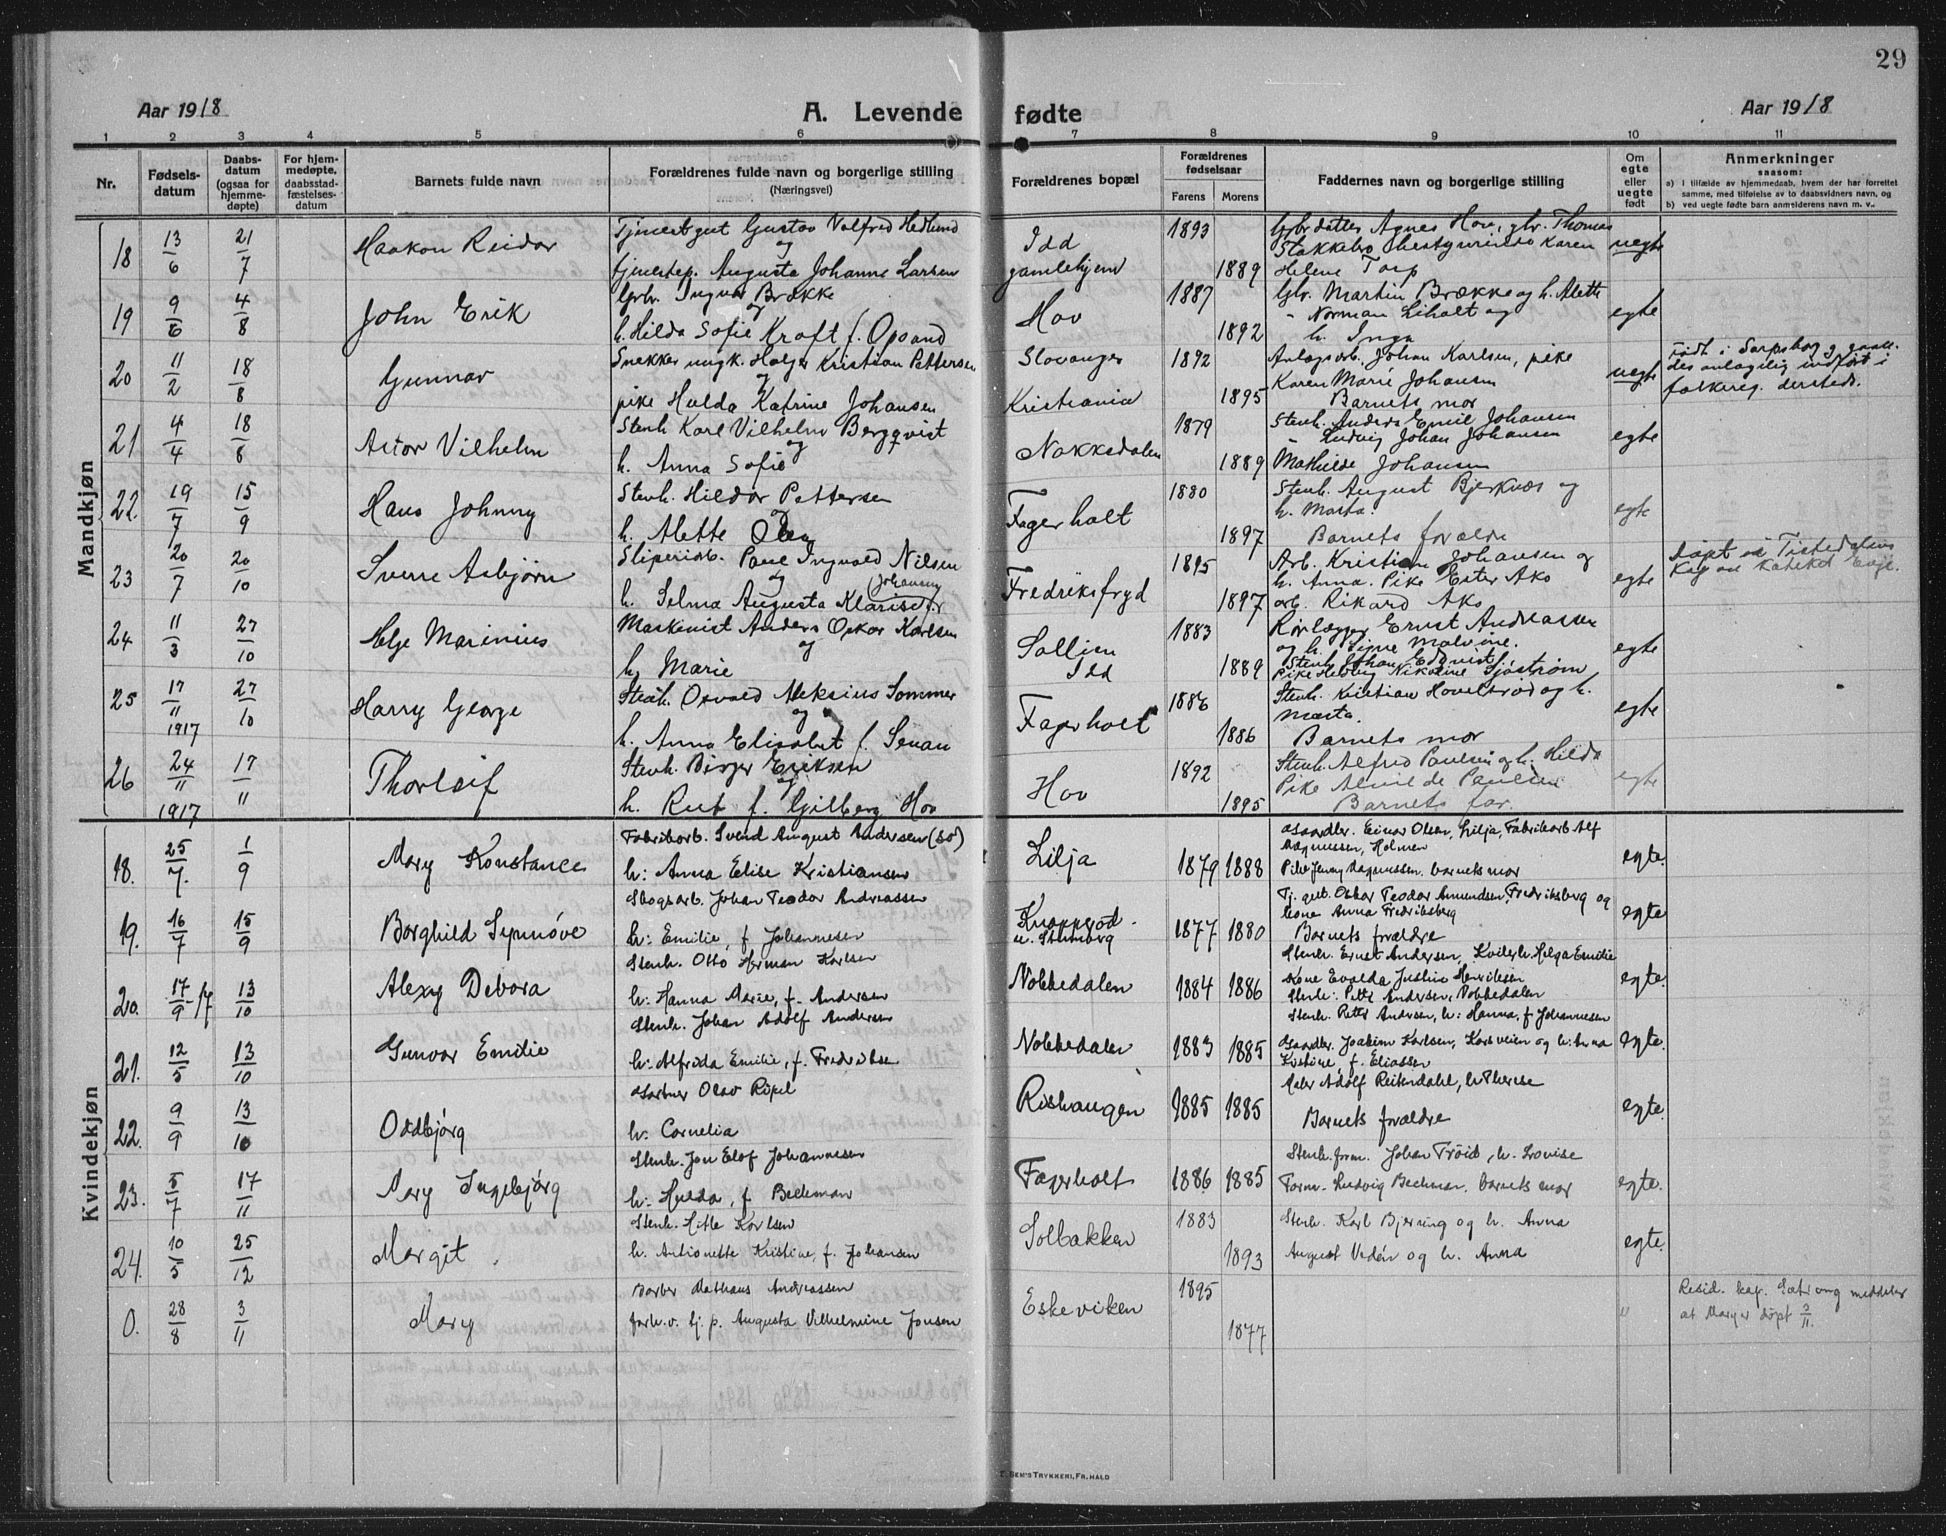 29
Aar 1918
A. Levende fødte
Aar 1918
1 2 3 4 5 6 7 8 9 10 11
Nr.
Fødsels-
datum
Daabs-
datum
(ogsaa for
hjemme-
døpte)
For hjem-
medøpte,
daabsstad-
fæstelses-
datum
Barnets fulde navn
Forældrenes fulde navn og borgerlige stilling
(Næringsvei)
Forældrenes bopæl
Forældrenes
fødselsaar
Farens Morens
Faddernes navn og borgerlige stilling
Om
egte
eller
uegte
født
Anmerkninger
saasom:
a) i tilfælde av hjemmedaab, hvem der har forrettet
samme, med tilføielse av to daabsvidners navn, og
b) ved uegte fødte barn anmelderens navn m. v.
Mandkjøn
18 13/6 21/7 Haakon Reidar
Tjenestgut Gustav Valfred Hedlund
og
tjenestep. Augusta Johanne Larsen
Idd
gamlehjem
1893
1889
Agnes Hov, gbr. Thomas
Stakkebro bestyrerinde Karen
Helene Torp
uegte
19 9/6 4/8 John Erik
Gbr. Ingvar Brække
og
h. Hilda Sofie Kraft f. Opsand
Hov
1887
1892
Gbr. Martin Brække og h. Alette
" Norman Liholt og
h. Inga
egte
20 11/2 18/8 Gunnar
Snekker ungk. Holger Kristian Pettersen
og
pike Hulda Katrine Johansen
Kristiania
1892
1895
Anlægsarb. Johan Karlsen, pike
Karen Marie Johansen
Barnets mor
uegte
Født i Sarpsborg
indført i
folkereg. dersteds.
21 4/4 18/8 Astor Vilhelm
Stenh. Karl Vilhelm Bergqvist
og
h. Anna Sofie
Nokkedalen
1879
1889
Stenh. Anders Emil Johansen
" Ludvig Johan Johansen
Mathilde Johansen
egte
22. 19/7 15/9 Hans Johnny
Stenh. Hildor Pettersen
og
h. Alette Olsen
Fagerholt
1880
1897
Stenh. August Bjerknæs og
h. Marta.
Barnets forældre
egte
23 20/7 20/10 Sverre Asbjørn
Sliperiarb. Paul Ingvald Nilsen
og
h. Selma Augusta Klarise f. Johansen
Fredriksfryd
1895
1897
Arb. Kristian Johansen og
h. Anna. Pike Ester Ako
arb. Rikard Ako
egte
Døpt i Tistedalens
24 11/3 27/10 Helge Marinius
Maskinist Anders Oskar Karlsen
og
h. Marie
Sollien
Idd
1883
1889
Rørlægger Ernst Andreassen
og h. Signe Malvine.
Stenh. Johan Edqvist
Pike Hedvig Nikoline Sjøstrøm
egte
25 17/11 1917 27/10 Harry George
Stenh. Osvald Aleksius Sommer
og
h. Anna Elisabet f. Senan
Fagerholt
1886
1886
Stenh. Kristian Hovelsrød og h.
Marta.
Barnets mor
egte
26 24/11 1917 17/11 Thorleif
Stenh. Birger Eriksen
og
h. Rut f. Gilberg Hov
Hov
1892
1895
Stenh. Alfred Paulsen og h. Hilda
Pike Almilde Paulsen
Barnets far.
egte
Kvindekjøn
18. 25/7. 1/9 Mary Konstance
Fabrikarb. Svend August Andersen (50)
h: Anna Elise Kristiansen
Lilja
1879 1888
Gaardbr. Einar Olsen, Lilja, Fabrikarb Alf
Magnussen, Holmen
Pike Jenny Magnussen, barnets mor
egte.
19. 16/7 15/9 Borghild Synnøve
Skogsarb. Johan Teodor Andreassen
h: Emilie, f. Johannesen
Knapperød
u. Stumberg
1877 1880
Tj. gut. Oskar Teodor Amundsen, Fredriksberg og
kone Anna Fredriksberg
Barnets forældre
egte
20. 17/9-17 13/10 Alexy Debora
Stenh. Otto Herman Karlsen
h: Hanna Marie, f. Andersen
Nokkedalen
1884 1886
Stenh. Ernst Andersen, Helga Emilie
kone Evalda Justine Henriksen
Stenh: Petter Andersen, Nokkedalen
egte.
21. 12/5 13/10 Gunvor Emilie
Stenh. Johan Adolf Andersen
h: Alfrida Emilie, f. Fredriksen
Nokkedalen
1883 1885
Stenh. Petter Andersen, h: Hanna, f. Johannesen
Gaardbr. Joakim Karlsen, Korsveien og h: Anna
Kristine, f. Eliassen
egte.
22. 9/9 13/10 Oddbjørg
Gartner Olav Ripel
h: Cornelia
Rishaugen
1885 1885
Maler Adolf Reitendahl, h. Therese
Barnets forældre
egte.
23. 5/7 17/11 Mary Ingebjørg
Stenh. Jon Elof Johannesen
h: Hulda, f. Beckman
Fagerholt
1886 1885
Stenh. form. Johan Trøid, h. Lovise
Form. Ludvig Beckman. barnets mor
egte.
24. 10/5 25/12 Margit.
Stenh. Hitle Karlsen
h. Antionette Kristine, f. Johansen
Solbakken
1883
1893
Stenh. Karl Bjerring og h. Anna
August Vedén og h. Anna
egte.
0. 28/8 3/11 Mary
Barber Mathæus Andreassen
forh. v. tj. p. Augusta Vilhelmine Jonsen
Eskeviken
1895
1877
"
Resid. kap. meddeler
at Mary er døpt 3/11.
E. SEM'S TRYKKERI, FR.HALD